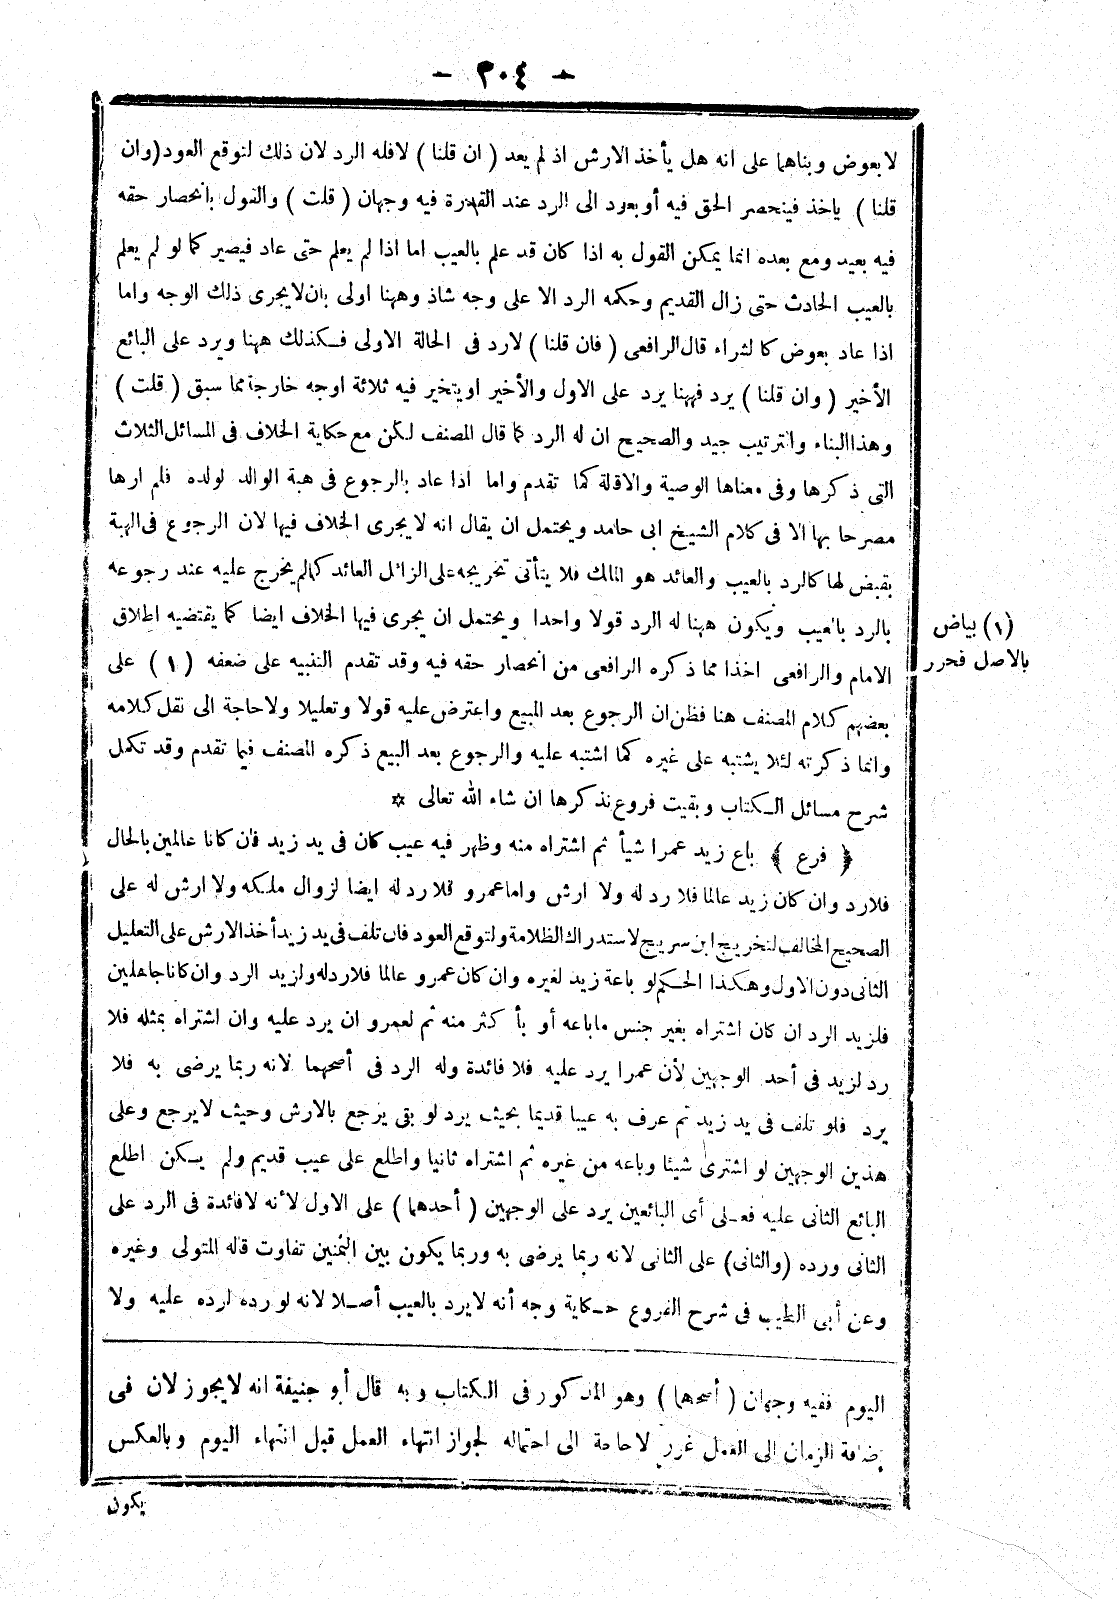 - ٣٠٤ -
لا بعوض وبناهما على انه هل يأخذ الارش اذ لم يعد ( ان قلنا ) لا فله الرد لان ذلك لتوقع العود (وان
قلنا ) ياخذ فينحصر الحق فيه أو يعود الى الرد عند القدرة فيه وجهان ( قلت ) والقول بانحصار حقه
فيه بعيد ومع بعده انما يمكن القول به اذا كان قد علم بالعيب اما اذا لم يعلم حتى عاد فيصير كما لو لم يعلم
بالعيب الحادث حتى زال القديم وحكمه الرد الا على وجه شاذ وههنا اولى بان لا يجرى ذلك الوجه واما
اذا عاد بعوض كالشراء قال الرافعى ( فان قلنا ) لا رد فى الحالة الاولى فكذلك ههنا ويرد على البائع
الأخير ( وان قلنا ) يرد فههنا يرد على الاول والأخير او يتخير فيه ثلاثة اوجه خارجة مما سبق ( قلت )
وهذا البناء والترتيب جيد والصحيح ان له الرد كما قال المصنف لكن مع حكاية الخلاف فى المسائل الثلاث
التى ذكرها وفى معناها الوصية والاقالة كما تقدم واما اذا عاد بالرجوع فى هبة الوالد لولده فلم ارها
مصرحا بها الا فى كلام الشيخ ابى حامد ويحتمل ان يقال انه لا يجرى الخلاف فيها لان الرجوع فى الهبة
بقبض لها كالرد بالعيب والعائد هو الملك فلا يتأتى تخريجه على الزائل العائد كما لم يخرج عليه عند رجوعه
بالرد بالعيب ويكون ههنا له الرد قولا واحدا ويحتمل ان يجرى فيها الخلاف ايضا كما يقتضيه اطلاق
الامام والرافعى اخذا مما ذكره الرافعى من انحصار حقه فيه وقد تقدم التنبيه على ضعفه ( ١ ) على
بعضهم كلام المصنف هنا فظن ان الرجوع بعد المبيع واعترض عليه قولا وتعليلا ولا حاجة الى نقل كلامه
وانما ذكرته لئلا يشتبه على غيره كما اشتبه عليه والرجوع بعد البيع ذكره المصنف فيما تقدم وقد تكمل
شرح مسائل الكتاب وبقيت فروع نذكرها ان شاء الله تعالى ✡
﴿ فرع ﴾ باع زيد عمرا شيأ ثم اشتراه منه وظهر فيه عيب كان فى يد زيد فان كانا عالمين بالحال
فلا رد وان كان زيد عالما فلا رد له ولا ارش واما عمرو فلا رد له ايضا لزوال ملكه ولا ارش له على
الصحيح المخالف لتخريج ابن سريج لاستدراك الظلامة ولتوقع العود فان تلف فى يد زيد أخذ الارش على التعليل
الثانى دون الاول وهكذا الحكم لو باعة زيد لغيره وان كان عمرو عالما فلا رد له ولزيد الرد وان كانا جاهلين
فلزيد الرد ان كان اشتراه بغير جنس ما باعه أو بأكثر منه ثم لعمرو ان يرد عليه وان اشتراه بمثله فلا
رد لزيد فى أحد الوجهين لأن عمرا يرد عليه فلا فائدة وله الرد فى أصحهما لانه ربما يرضى به فلا
يرد فلو تلف فى يد زيد ثم عرف به عيبا قديما بحيث يرد لو بقى يرجع بالارش وحيث لا يرجع وعلى
هذين الوجهين لو اشترى شيئا وباعه من غيره ثم اشتراه ثانيا واطلع على عيب قديم ولم يكن اطلع
البائع الثانى عليه فعلى أى البائعين يرد على الوجهين ( أحدهما ) على الاول لأنه لا فائدة فى الرد على
الثانى ورده (والثانى) على الثانى لانه ربما يرضى به وربما يكون بين الثمنين تفاوت قاله المتولى وغيره
وعن أبى الطيب فى شرح الفروع حكاية وجه أنه لا يرد بالعيب أصلا لانه لو رده لرده عليه ولا
(١) بياض
بالاصل فحرر
اليوم ففيه وجهان ( أصحهما ) وهو المذكور فى الكتاب وبه قال أبو حنيفة انه لا يجوز لان فى
إضافة الزمان إلى العمل غرر لا حاجة الى احتماله لجواز انتهاء العمل قبل انتهاء اليوم وبالعكس
يكون